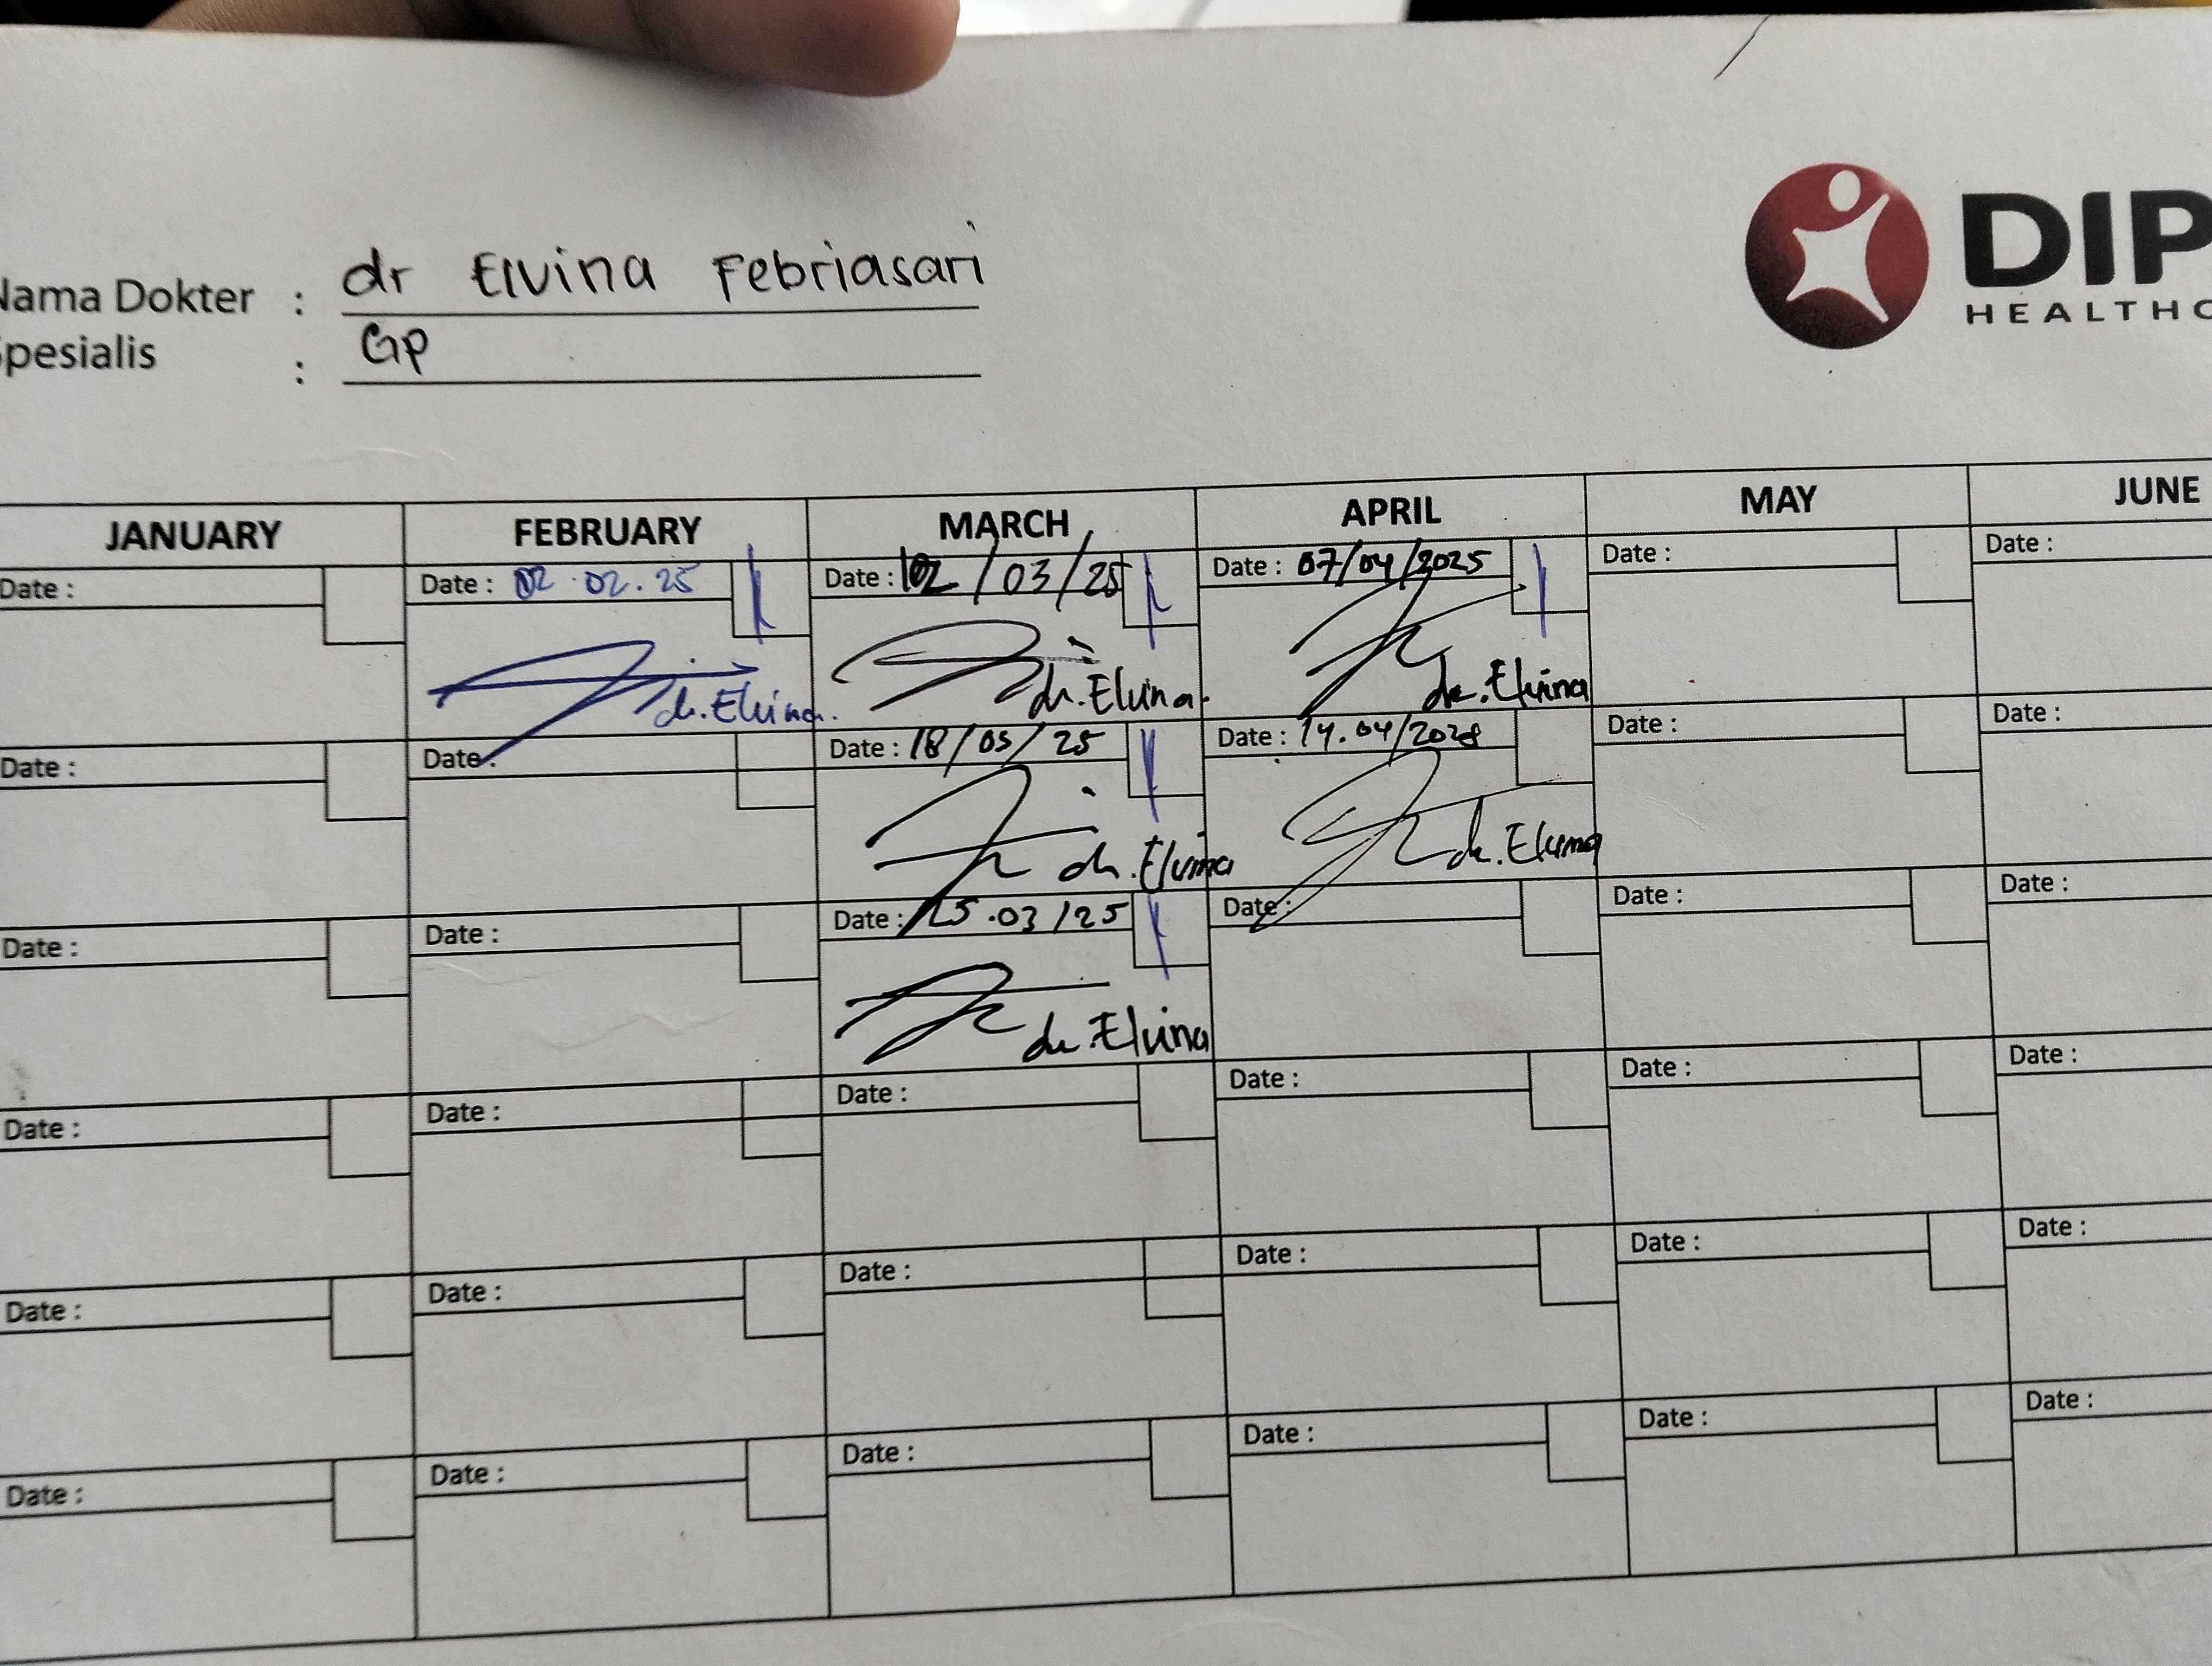 dr Elvina Febriasari
Nama Dokter :
GP
Spesialis :
DIP
HEALTHC
JANUARY FEBRUARY MARCH APRIL MAY JUNE
Date : Date : 02.02.25 Date : 02/03/25 Date : 07/04/2025 Date : Date :
dr.Elvina. dr.Elvina. dr.Elvina
Date : Date : Date : 18/03/25 Date : 14.04/2025 Date : Date :
dr.Elvina dr.Elvina
Date : Date : Date : 25.03/25 Date : Date : Date :
dr.Elvina
Date : Date : Date : Date : Date : Date :
Date : Date : Date : Date : Date : Date :
Date : Date : Date : Date : Date : Date :